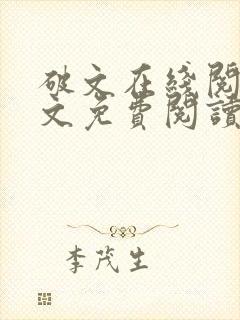 破文在线阅
文免費閱讀
李茂生